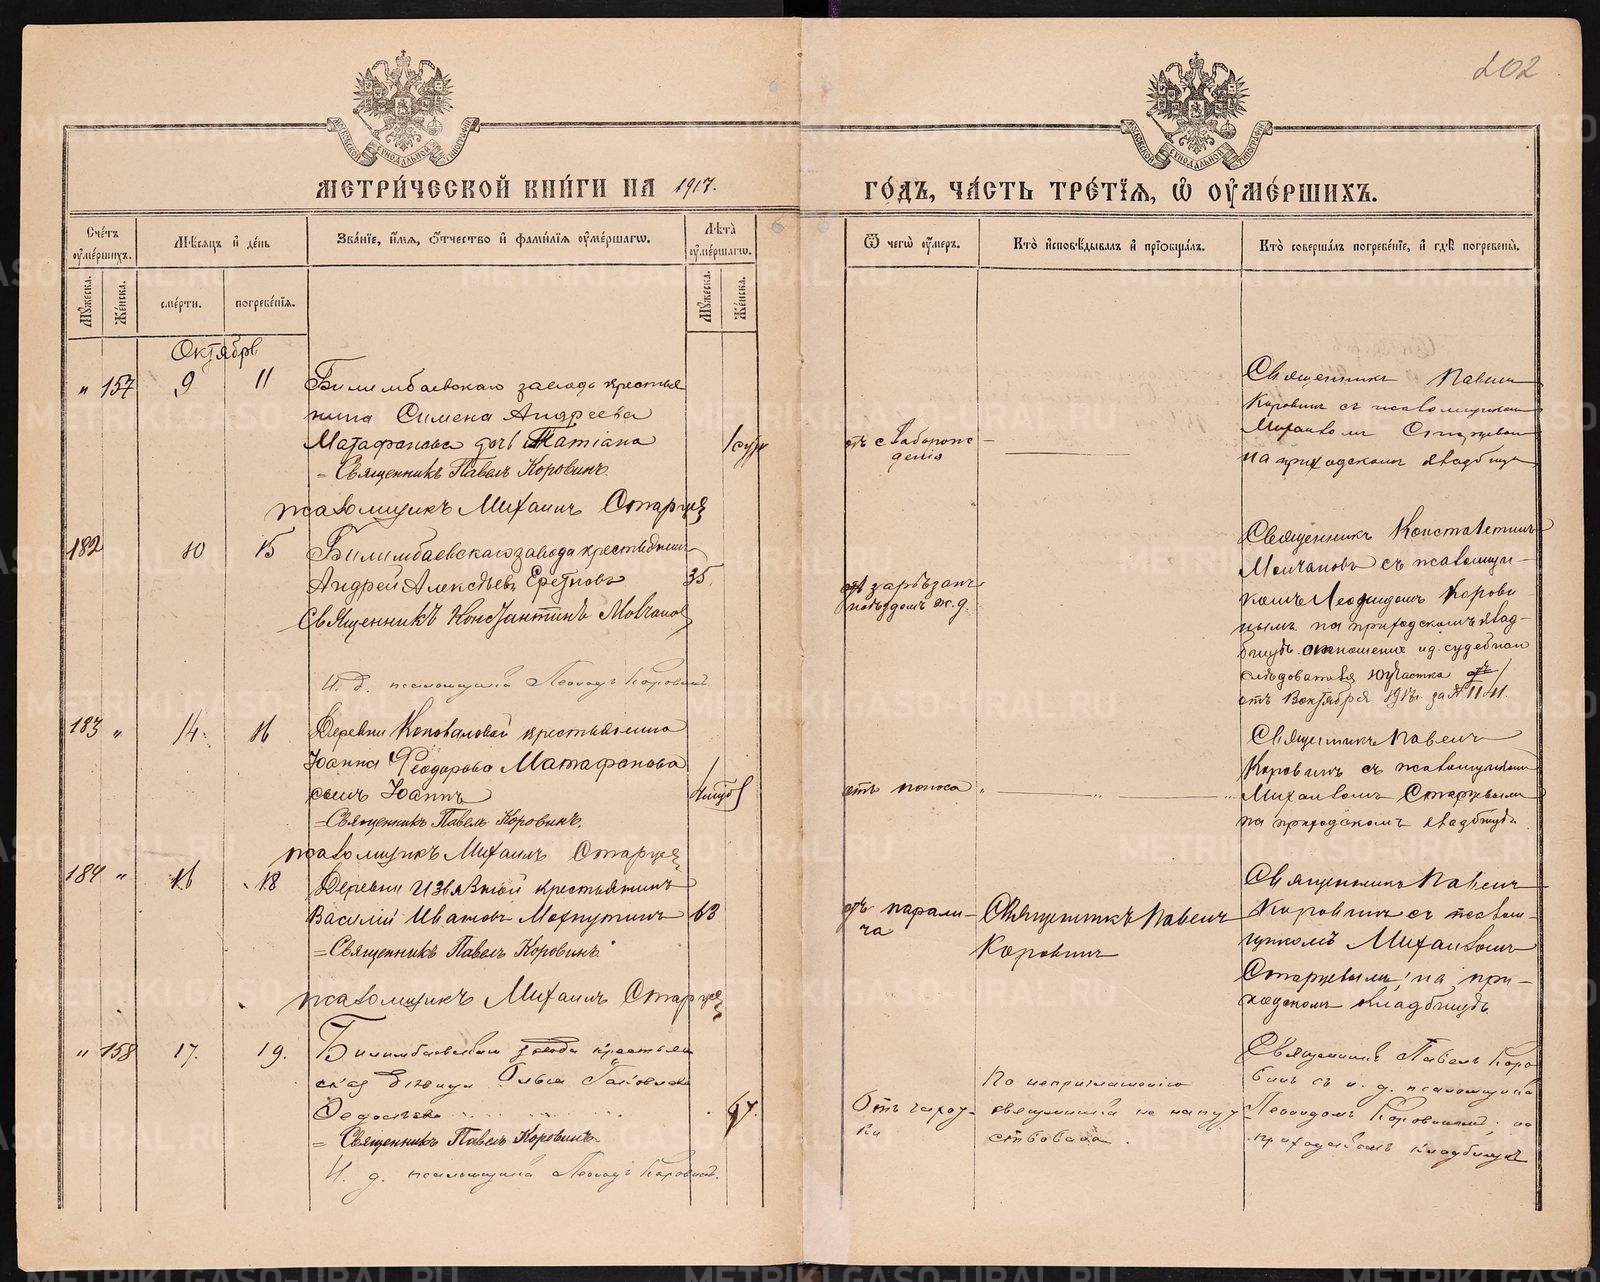 202
МОСКОВСКОЙ СѴНОДАЛЬНОЙ ТИПОГРАФІИ
МОСКОВСКОЙ СѴНОДАЛЬНОЙ ТИПОГРАФІИ
МЕТРИ́ЧЕСКОЙ КНИ́ГИ НА 1917.
ГО́ДЪ, ЧА́СТЬ ТРЕ́ТІѦ, Ѡ ОУ҆МЕ́РШИХЪ.
Сче́тъ оу҆ме́ршихъ.
Мѣ́сѧцъ и҆ де́нь
Зва́нїе, и҆́мѧ, ѻ҆́тчество и҆ фами́лїѧ оу҆ме́ршагѡ.
Лѣ́та оу҆ме́ршагѡ.
Ѿ чегѡ̀ оу҆́меръ.
Кто̀ и҆сповѣ́дывалъ и҆ прїѡбща́лъ.
Кто̀ соверша́лъ погребе́нїе, и҆ гдѣ̀ погребены̀.
Мꙋ́жеска.
Же́нска.
сме́рти.
погребе́нїѧ.
Мꙋ́жеска.
Же́нска.
Октябрь
" 157 9 11
Билимбаевскаго завода крестья
нина Симена Андреева
Матафонова дочь Татіана
1 сут
= Священникъ Павелъ Коровинъ.
псаломщикъ Михаилъ Старцев
отъ слаборож-
денія
Священникъ Павелъ
Коровинъ съ псаломщикомъ
Михаиломъ Старцевым
на приходскомъ кладбищѣ
182 10 15
Билимбаевскаго завода крестьянинъ
Андрей Алексѣевъ Еретновъ
35
Священникъ Константинъ Молчанов
И. д. псаломщика Леонидъ Коровинъ.
отъ зарѣзан
поѣздомъ ж. д.
Священникъ Константинъ
Молчановъ съ псаломщи-
комъ Леонидомъ Корови
нымъ на приходскомъ клад-
бищѣ. отношение и д. судебнаго
слѣдователя 10 участка
отъ 13 октября 1917 г. за № 1141.
183 " 14. 16
Деревни Коноваловой крестьянина
Іоанна Феодорова Матафонова
сынъ Іоаннъ
= Священникъ Павелъ Коровинъ.
псаломщикъ Михаилъ Старцев
отъ поноса
Священникъ Павелъ
Коровинъ съ псаломщикомъ
Михаиломъ Старцевымъ
на приходскомъ кладбищѣ.
184 " 16 18
Деревни Извѣзной крестьянинъ
Василій Ивановъ Махнуткинъ 63
= Священникъ Павелъ Коровинъ
псаломщикъ Михаилъ Старцев
отъ парали-
ча
Священникъ Павелъ
Коровинъ
Священникъ Павелъ
Коровинъ съ псалом-
щикомъ Михаиломъ
Старцевымъ, на при-
ходскомъ кладбищѣ.
" 158 17. 19.
Билимбаевскаго завода крестьян
ская дѣвица Ольга
Федосѣева
67.
= Священникъ Павелъ Коровинъ.
И. д. псаломщика Леонидъ Коровинъ.
Отъ чахот-
ки
По неприглашенію
священника не напут-
ствована.
Священникъ Павелъ Коро
винъ съ и. д. псаломщика
Леонидомъ Коровинымъ, на
приходскомъ кладбищѣ
METRIKI.GASO-URAL.RU